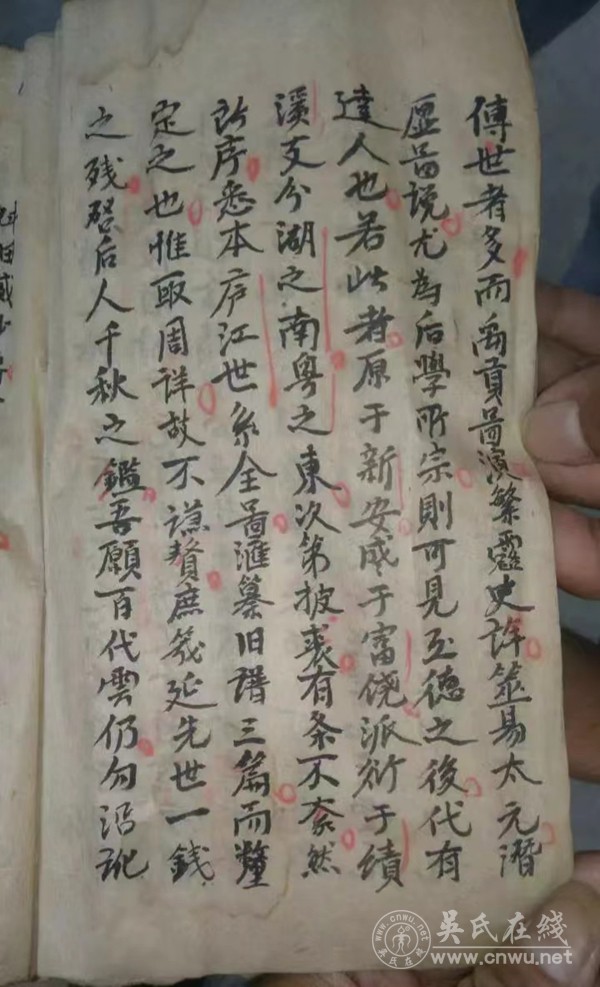 傳世者多而禹貢啚演繁露史評筮易太元潛
虛啚说尤為后學所宗則可見至德之後代有
達人也若此者原于新安成于富饶派衍于績
溪支分湖之南粤之東次第披表有条不紊然
所序悉本庐江世系全啚滙纂旧譜三篇而釐
定之也惟取周详故不謙赘庶幾延先世一錢
之残啓后人千秋之鑑吾願百代雲仍勿沿訛
吴氏在线
www.cnwu.net